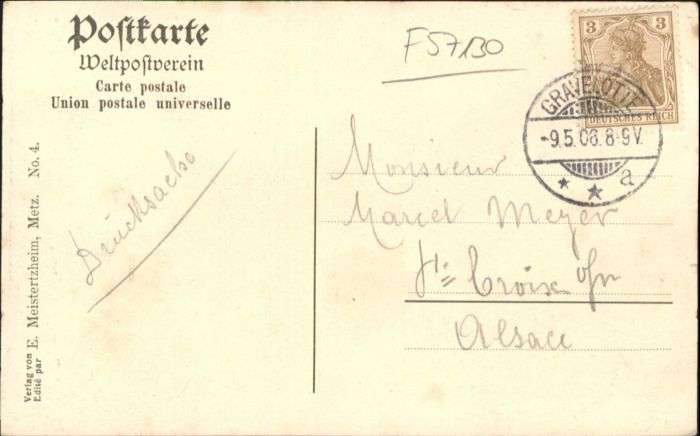 Postkarte
Weltpostverein
Carte postale
Union postale universelle
F57130
3 3
DEUTSCHES REICH
GRAVELOTTE
-9.5.06.8-9V.
* * a
Drucksache
Monsieur
Marcel Meyer
Ste Croix a/m
Alsace
Verlag von E. Meistertzheim, Metz. No. 4.
Edité par